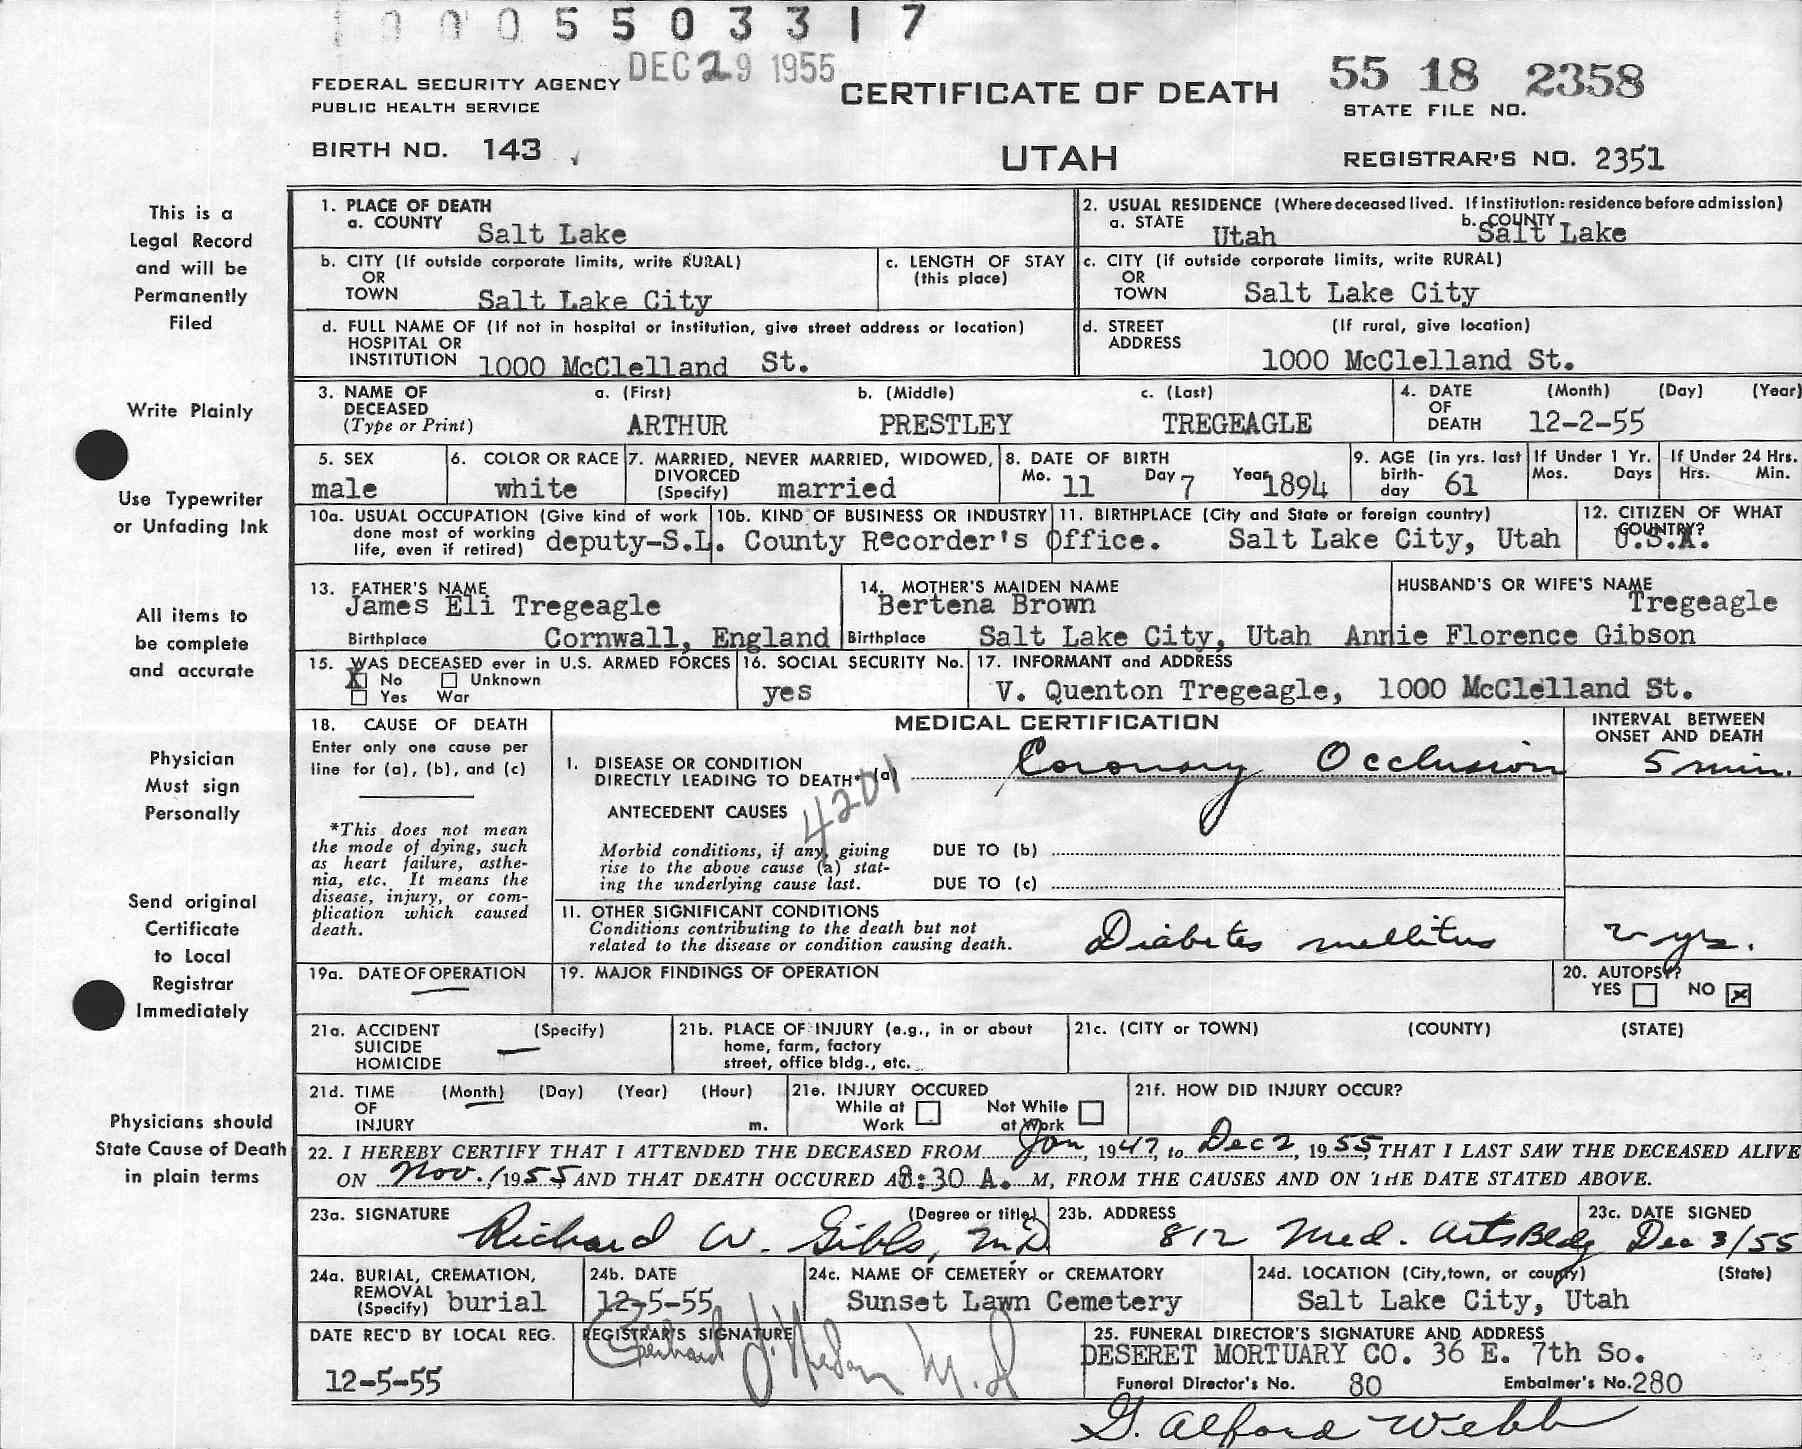 1 0 0 0 5 5 0 3 3 1 7
DEC 29 1955
FEDERAL SECURITY AGENCY
PUBLIC HEALTH SERVICE
CERTIFICATE OF DEATH
55 18 2358
STATE FILE NO.
BIRTH NO. 143
UTAH
REGISTRAR'S NO. 2351
This is a
Legal Record
and will be
Permanently
Filed
Write Plainly
Use Typewriter
or Unfading Ink
All items to
be complete
and accurate
Physician
Must sign
Personally
Send original
Certificate
to Local
Registrar
Immediately
Physicians should
State Cause of Death
in plain terms
1. PLACE OF DEATH
a. COUNTY Salt Lake
2. USUAL RESIDENCE (Where deceased lived. If institution: residence before admission)
a. STATE Utah b. COUNTY Salt Lake
b. CITY (If outside corporate limits, write RURAL)
OR
TOWN Salt Lake City
c. LENGTH OF STAY
(this place)
c. CITY (if outside corporate limits, write RURAL)
OR
TOWN Salt Lake City
d. FULL NAME OF (If not in hospital or institution, give street address or location)
HOSPITAL OR
INSTITUTION 1000 McClelland St.
d. STREET (If rural, give location)
ADDRESS 1000 McClelland St.
3. NAME OF DECEASED (Type or Print)
a. (First) b. (Middle) c. (Last)
ARTHUR PRESTLEY TREGEAGLE
4. DATE OF DEATH (Month) (Day) (Year)
12-2-55
5. SEX
male
6. COLOR OR RACE
white
7. MARRIED, NEVER MARRIED, WIDOWED,
DIVORCED
(Specify) married
8. DATE OF BIRTH
Mo. 11 Day 7 Year 1894
9. AGE (in yrs. last
birth-
day 61
If Under 1 Yr.
Mos. Days
If Under 24 Hrs.
Hrs. Min.
10a. USUAL OCCUPATION (Give kind of work
done most of working
life, even if retired) deputy-S.L. County Recorder's Office.
10b. KIND OF BUSINESS OR INDUSTRY
11. BIRTHPLACE (City and State or foreign country)
Salt Lake City, Utah
12. CITIZEN OF WHAT
COUNTRY?
U.S.A.
13. FATHER'S NAME
James Eli Tregeagle
Birthplace Cornwall, England
14. MOTHER'S MAIDEN NAME
Bertena Brown
Birthplace Salt Lake City, Utah
HUSBAND'S OR WIFE'S NAME
Tregeagle
Annie Florence Gibson
15. WAS DECEASED ever in U.S. ARMED FORCES
X No Unknown
Yes War
16. SOCIAL SECURITY No.
yes
17. INFORMANT and ADDRESS
V. Quenton Tregeagle, 1000 McClelland St.
18. CAUSE OF DEATH
Enter only one cause per
line for (a), (b), and (c)
*This does not mean
the mode of dying, such
as heart failure, asthe-
nia, etc. It means the
disease, injury, or com-
plication which caused
death.
MEDICAL CERTIFICATION
INTERVAL BETWEEN
ONSET AND DEATH
I. DISEASE OR CONDITION
DIRECTLY LEADING TO DEATH* (a) Coronary Occlusion 5 min.
4201
ANTECEDENT CAUSES
Morbid conditions, if any, giving
rise to the above cause (a) stat-
ing the underlying cause last.
DUE TO (b)
DUE TO (c)
11. OTHER SIGNIFICANT CONDITIONS
Conditions contributing to the death but not
related to the disease or condition causing death.
Diabetes mellitus yrs.
19a. DATE OF OPERATION
19. MAJOR FINDINGS OF OPERATION
20. AUTOPSY?
YES NO X
21a. ACCIDENT (Specify)
SUICIDE
HOMICIDE
21b. PLACE OF INJURY (e.g., in or about
home, farm, factory
street, office bldg., etc.
21c. (CITY or TOWN) (COUNTY) (STATE)
21d. TIME (Month) (Day) (Year) (Hour)
OF
INJURY m.
21e. INJURY OCCURED
While at Work Not While at Work
21f. HOW DID INJURY OCCUR?
22. I HEREBY CERTIFY THAT I ATTENDED THE DECEASED FROM Jan, 1947, to Dec 2, 1955, THAT I LAST SAW THE DECEASED ALIVE
ON Nov. 1955, AND THAT DEATH OCCURED AT 8:30 A. M, FROM THE CAUSES AND ON THE DATE STATED ABOVE.
23a. SIGNATURE (Degree or title)
Richard W. Gibbs, M.D.
23b. ADDRESS
812 Med. Arts Bldg
23c. DATE SIGNED
Dec 3/55
24a. BURIAL, CREMATION,
REMOVAL
(Specify) burial
24b. DATE
12-5-55
24c. NAME OF CEMETERY or CREMATORY
Sunset Lawn Cemetery
24d. LOCATION (City, town, or county) (State)
Salt Lake City, Utah
DATE REC'D BY LOCAL REG.
12-5-55
REGISTRAR'S SIGNATURE
M.D
25. FUNERAL DIRECTOR'S SIGNATURE AND ADDRESS
DESERET MORTUARY CO. 36 E. 7th So.
Funeral Director's No. 80 Embalmer's No. 280
G. Alford Webb